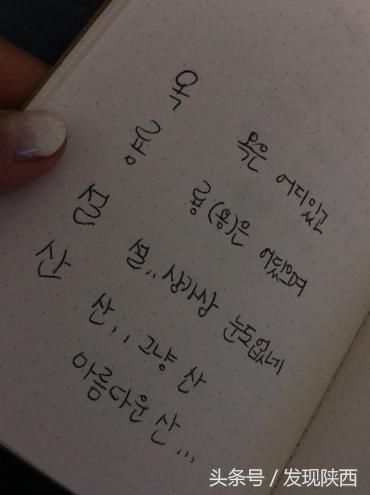 옥 옥은 어디있고
룡 룡(용)은 어딨으며
설 설,, 상가상 눈도없네
산 산,,, 그냥 산
아름다운 산...
头条号 / 发现陕西